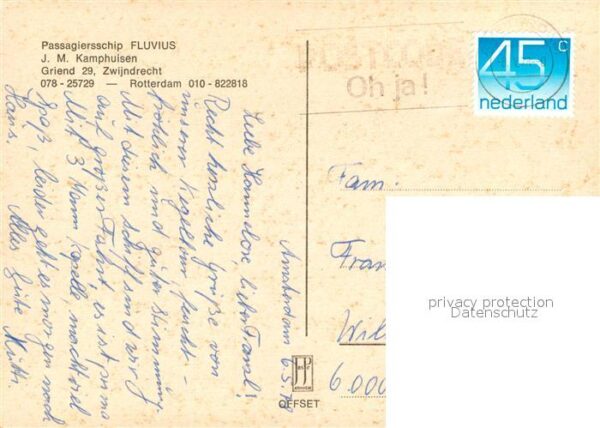 Passagiersschip FLUVIUS
J. M. Kamphuisen
Griend 29, Zwijndrecht
078 - 25729 — Rotterdam 010 - 822818
Oh ja!
45 c
nederland
Amsterdam 6.5.
Liebe Hannelore, lieber Franzl!
Recht herzliche Grüße von
unserer Kegeltour, feucht-
fröhlich und guter Stimmung.
Mit diesem Schiff sind wir
auf großer Fahrt, es ist prima
Mit 3 Mann Kapelle, macht viel
Spaß, leider geht es morgen nach
Haus. Alles Liebe
Fam.
Fran
Wil
6000
privacy protection
Datenschutz
OFFSET